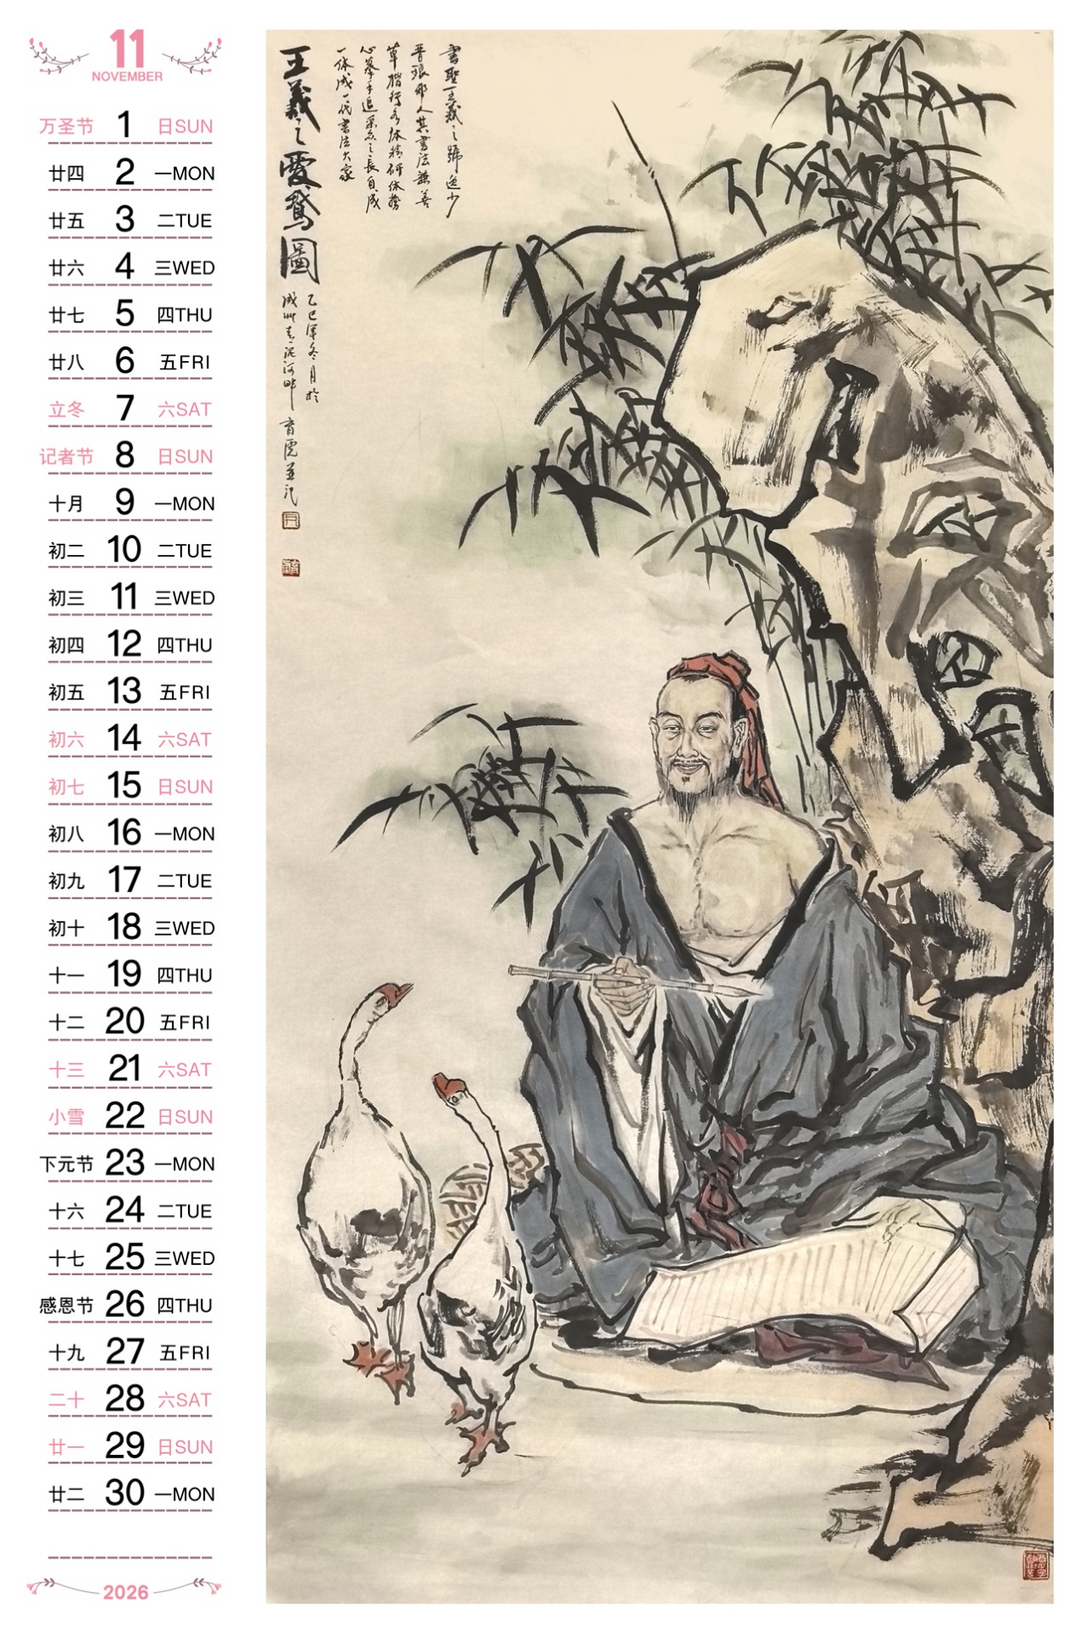 11
NOVEMBER
万圣节 1 日SUN
廿四 2 一MON
廿五 3 二TUE
廿六 4 三WED
廿七 5 四THU
廿八 6 五FRI
立冬 7 六SAT
记者节 8 日SUN
十月 9 一MON
初二 10 二TUE
初三 11 三WED
初四 12 四THU
初五 13 五FRI
初六 14 六SAT
初七 15 日SUN
初八 16 一MON
初九 17 二TUE
初十 18 三WED
十一 19 四THU
十二 20 五FRI
十三 21 六SAT
小雪 22 日SUN
下元节 23 一MON
十六 24 二TUE
十七 25 三WED
感恩节 26 四THU
十九 27 五FRI
二十 28 六SAT
廿一 29 日SUN
廿二 30 一MON
2026
書聖王羲之號逸少
晉琅邪人其書法兼善
草楷行各体精研体势
心摹手追采众之長自成
一体成一代書法大家
王羲之愛鵞圖
乙巳年冬月於
成州青泥河畔